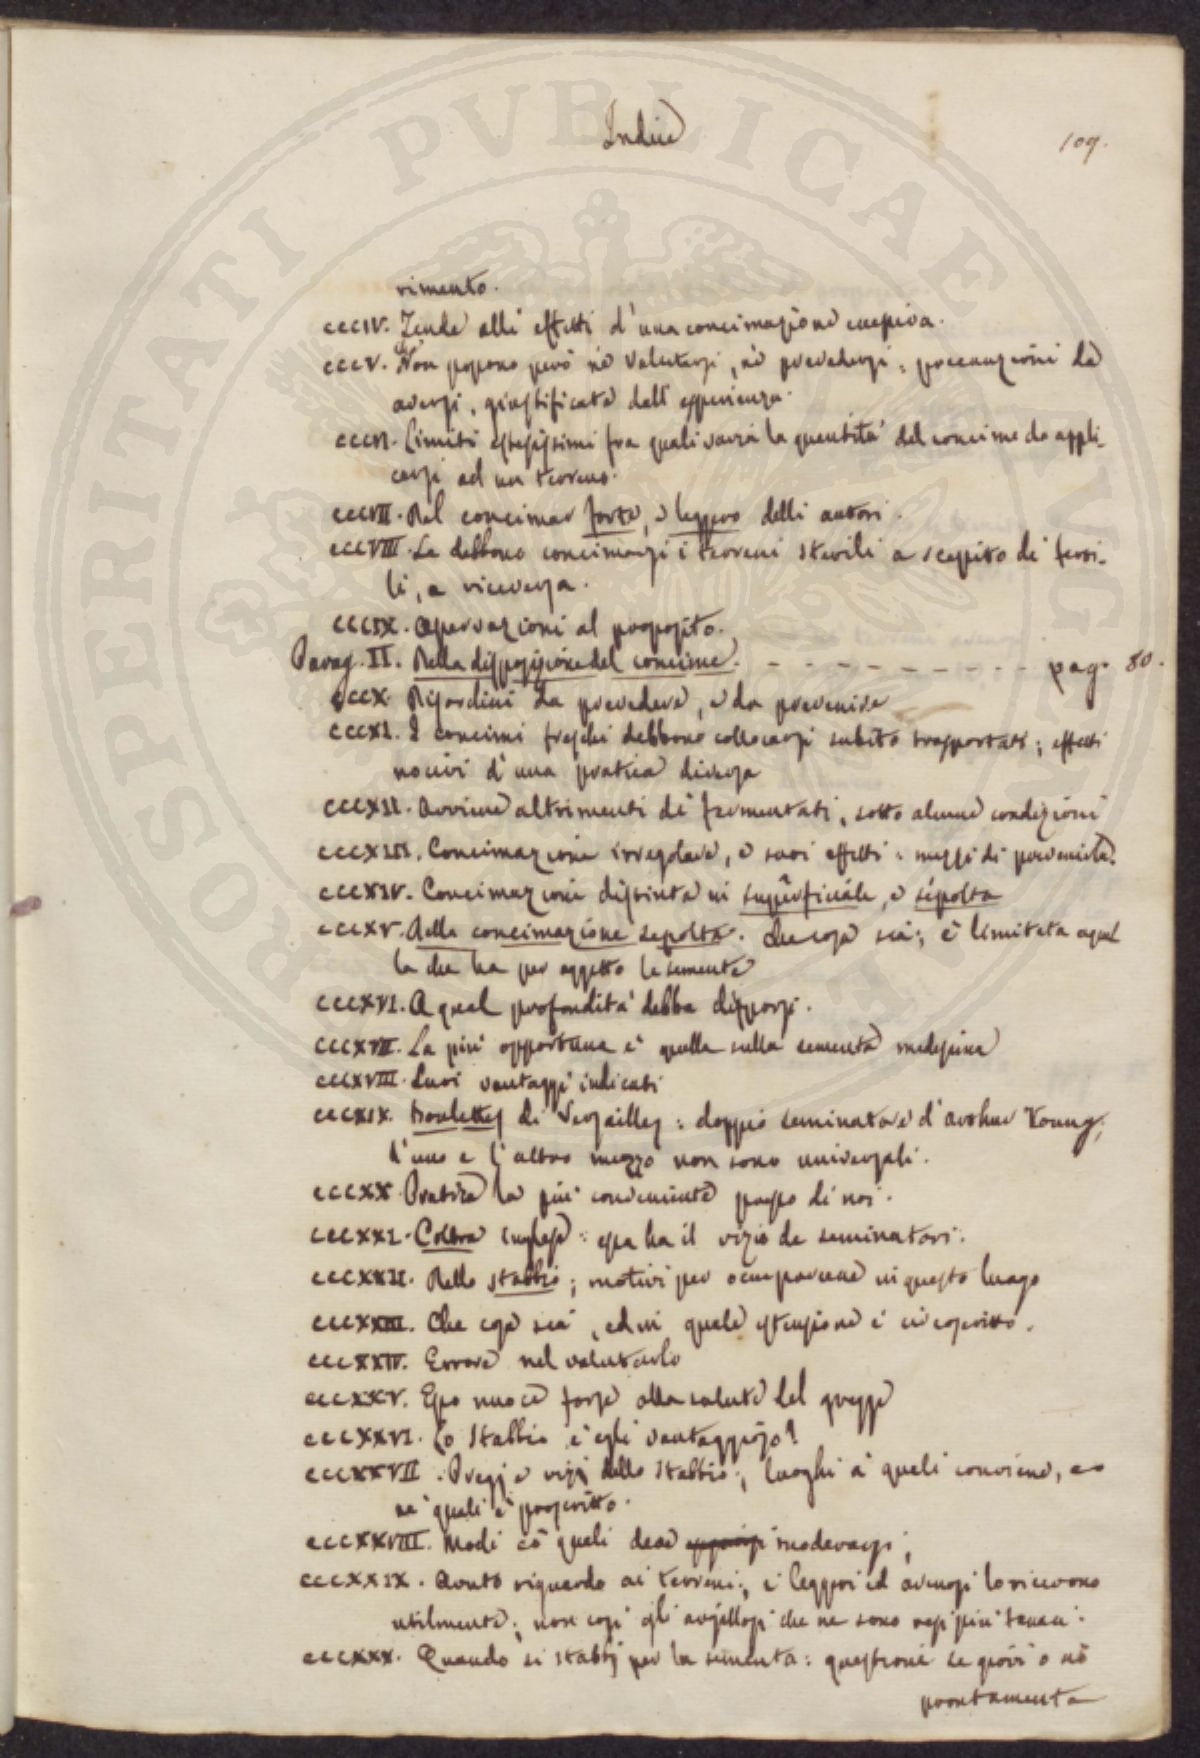 Indice
109.
rimento.
CCCIV. Tende alli effetti d'una concimazione eccessiva.
CCCV. Non possono però nè valutarsi, nè prevedersi: precauzioni da
aversi, giustificate dall'esperienza.
CCCVI. Limiti estesissimi fra quali varia la quantità del concime da appli-
carsi ad un terreno.
CCCVII. Del concimar forte, e leggero delli autori.
CCCVIII. Se debbono concimarsi i terreni sterili a scapito de' ferti-
li, e viceversa.
CCCIX. Osservazioni al proposito.
Parag. II. Della disposizione del concime. - - - - - - - - - - pag. 80.
CCCX. Disordini da prevedere, e da prevenire
CCCXI. I concimi freschi debbono collocarsi subito trasportati; effetti
nocivi d'una pratica diversa
CCCXII. Avviene altrimenti de' fermentati, sotto alcune condizioni
CCCXIII. Concimazione irregolare, e suoi effetti: mezzi di prevenirla.
CCCXIV. Concimazione distinta in superficiale, e sepolta
CCCXV. Della concimazione sepolta. Che cosa sia; è limitata a quel
la che ha per oggetto le semente
CCCXVI. A qual profondità debba disporsi.
CCCXVII. La più opportuna è quella sulla sementa medesima
CCCXVIII. Suoi vantaggi indicati
CCCXIX. Roulettes di Versailles: doppio seminatore d'Arthur Young;
l'uno e l'altro mezzo non sono universali.
CCCXX. Pratica la più conveniente presso di noi.
CCCXXI. Coltra inglese: essa ha il vizio de seminatori.
CCCXXII. Dello stabbio; motivi per occuparcene in questo luogo
CCCXXIII. Che cosa sia, ed in quale estensione è circoscritto.
CCCXXIV. Errore nel valutarlo
CCCXXV. Esso nuoce forse alla salute del gregge
CCCXXVI. Lo stabbio è egli vantaggioso?
CCCXXVII. Pregj e vizj dello stabbio; luoghi a' quali conviene, e
ne' quali è proscritto.
CCCXXVIII. Modi co' quali deve moderarsi;
CCCXXIX. Avuto riguardo ai terreni; i leggeri ed arenosi lo ricevono
utilmente; non così gli argillosi che ne sono resi più tenaci.
CCCXXX. Quando si stabbj per la sementa: questione se giovi o nò
prontamente
PROSPERITATI PVBLICAE AVGENDAE